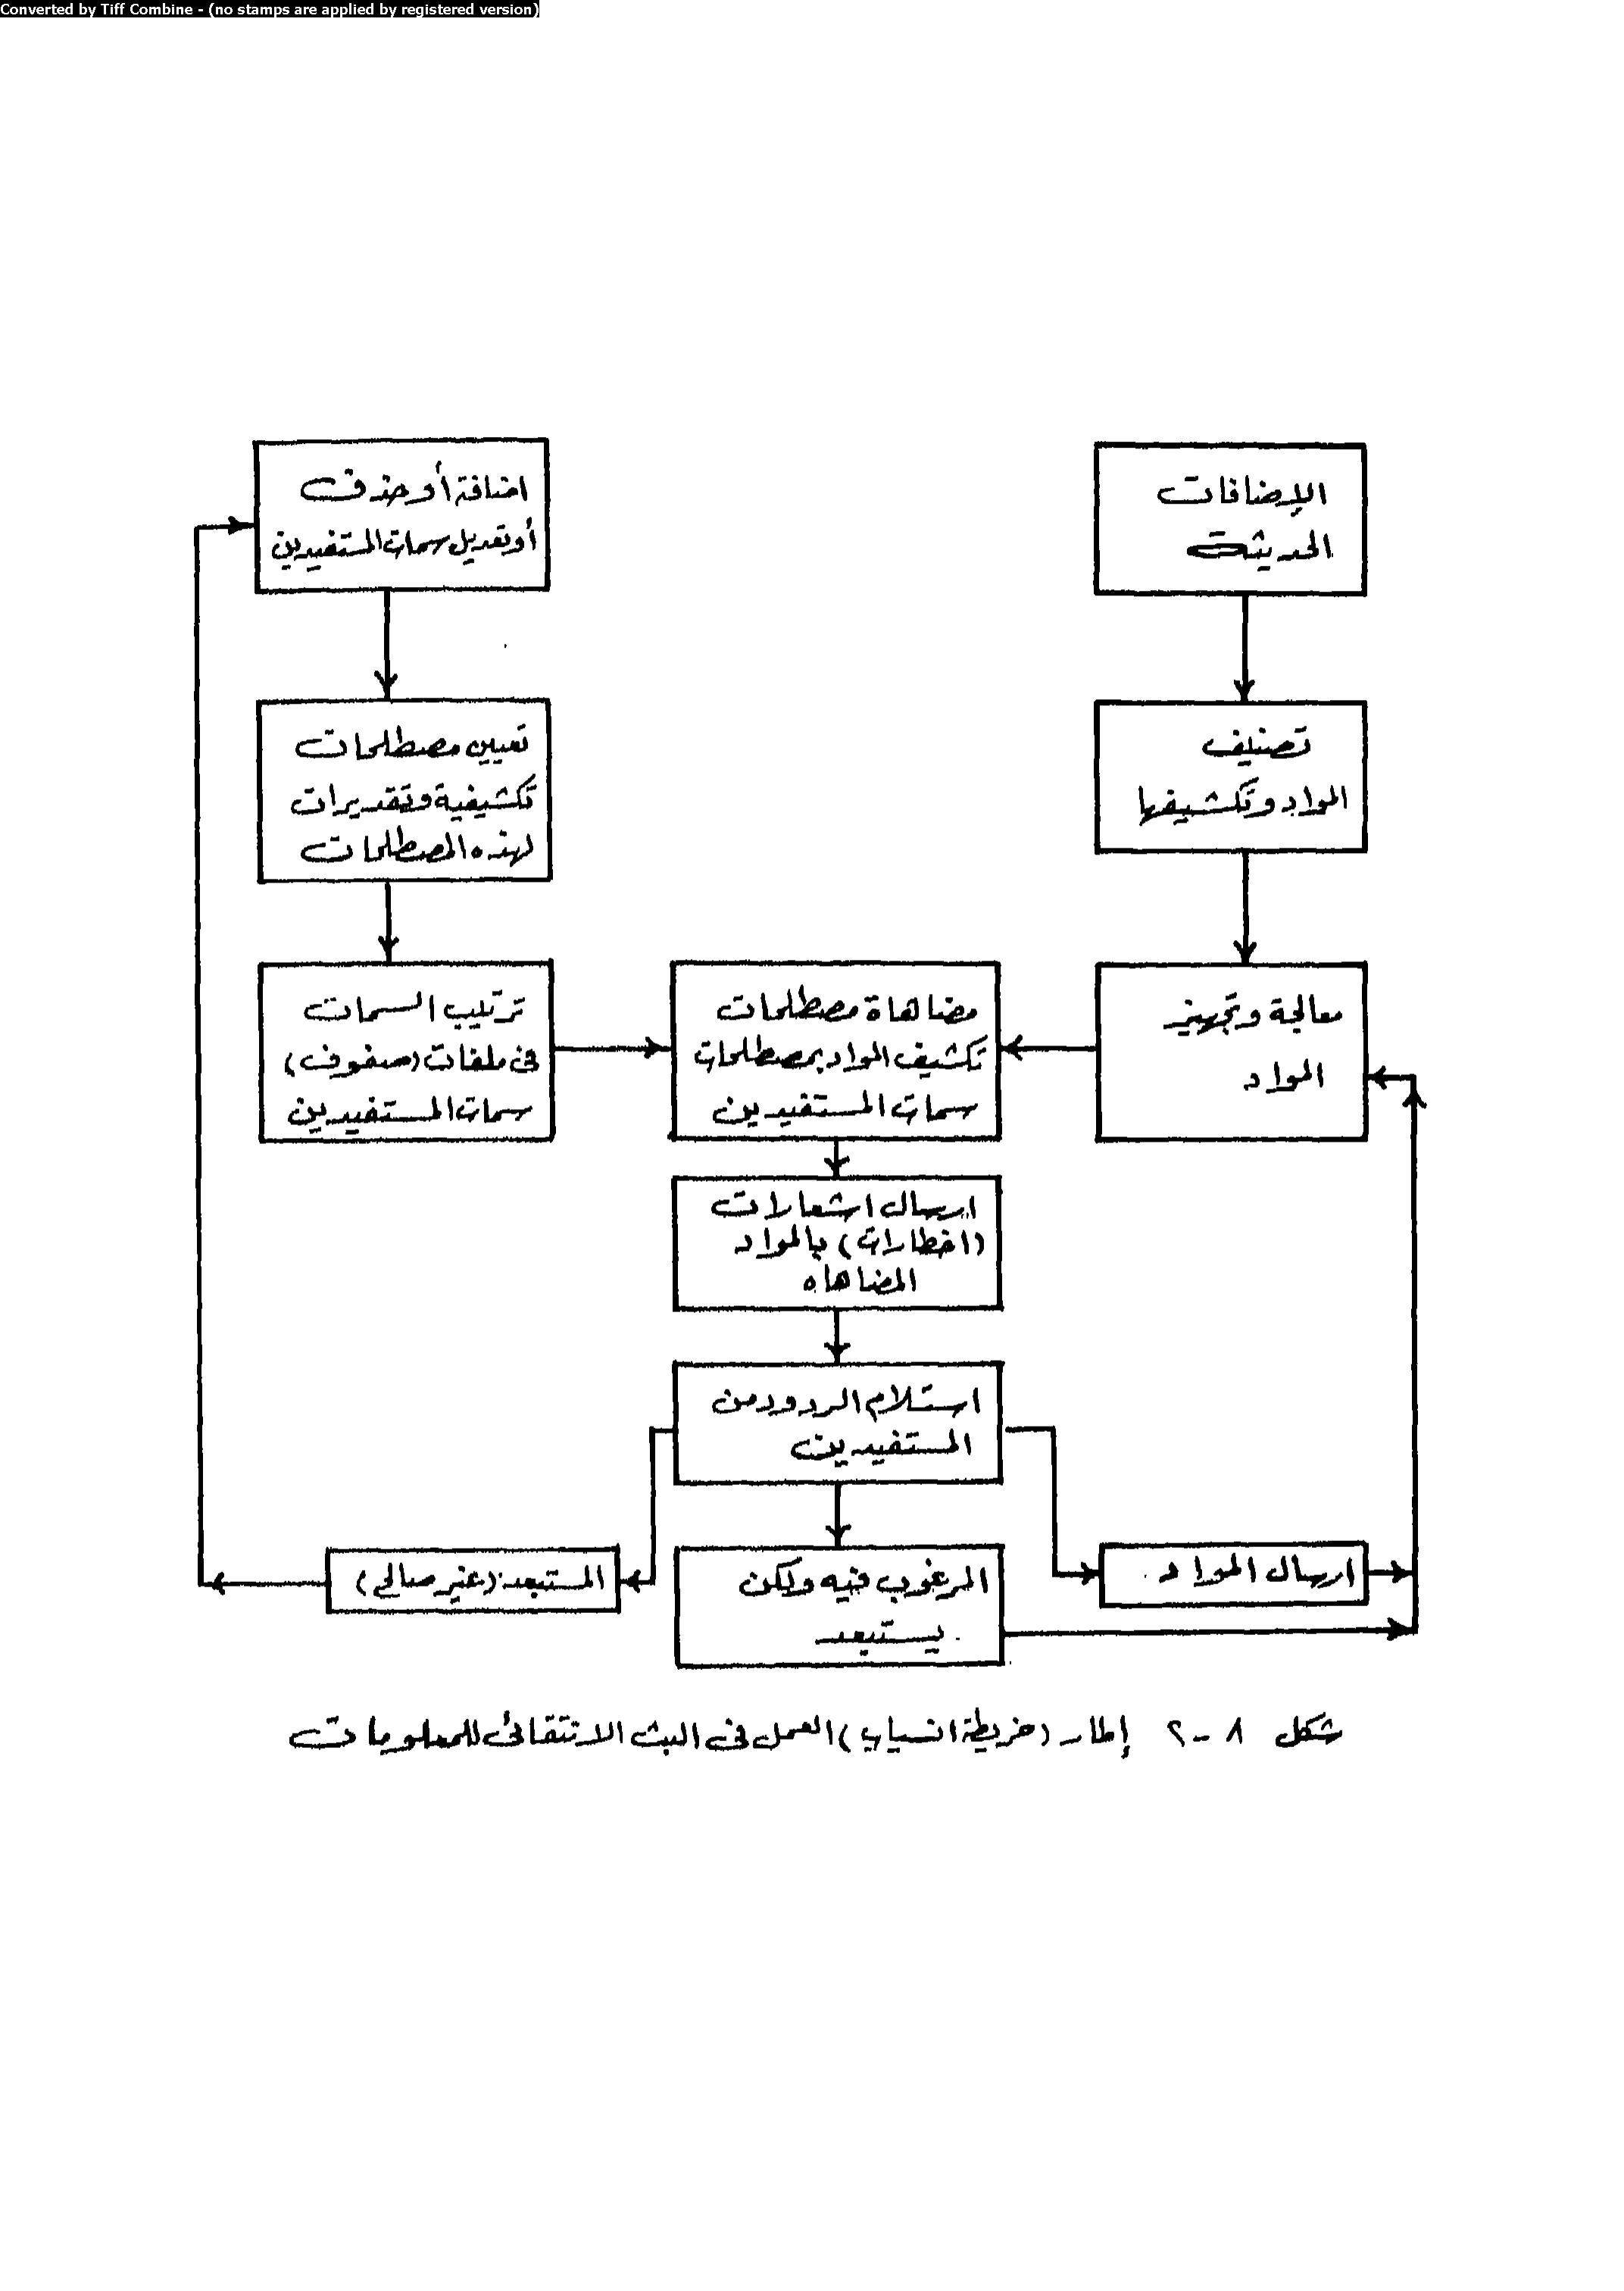 Converted by Tiff Combine - (no stamps are applied by registered version)
الإضافات
الحديثة
تصنيف
المواد وتكشيفها
معالجة وتجهيز
المواد
اضافة أو حذف
أو تعديل سمات المستفيدين
تعيين مصطلحات
تكشيفية وتقديرات
لهذه المصطلحات
ترتيب السمات
فى ملفات (صفوف)
سمات المستفيدين
مضاهاة مصطلحات
تكشيف المواد بمصطلحات
سمات المستفيدين
ارسال اشعارات
(اخطارات) بالمواد
المضاهاه
استلام الردود من
المستفيدين
ارسال المواد
المرغوب فيه ولكن
يستبعد
المستبعد (غير صالح)
شكل ٨-٢ إطار (خريطة انسياب) العمل فى البث الانتقائى للمعلومات